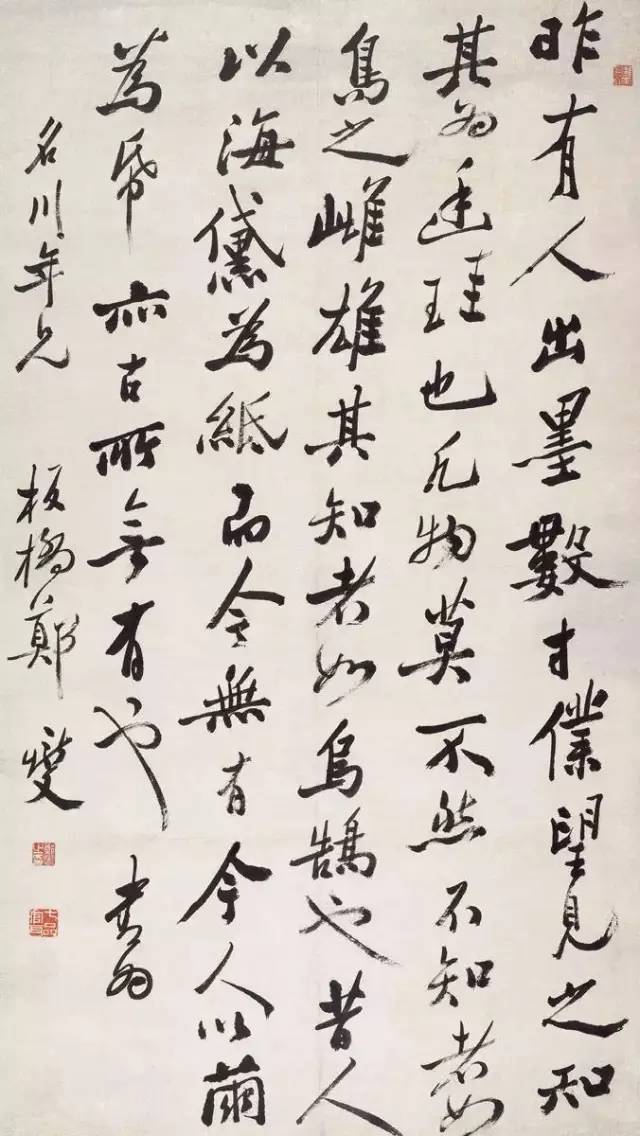 昨有人出墨數寸僕望見之知
其為廷珪也凡物莫不然不知者如
鳥之雌雄其知者如烏鵠也昔人
以海黛為紙而今無有今人以繭
為帋亦古所無有也 書為
名川年兄 板橋鄭燮